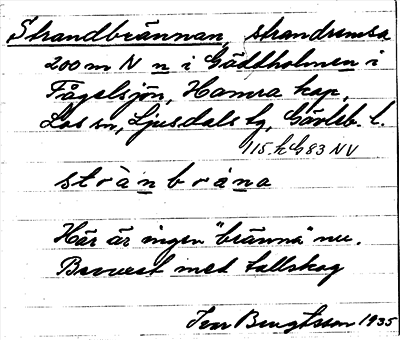 Strandbrännan, strandremsa
200 m N n i Gäddholmen i
Fågelsjön, Hamra kap.
Los sn, Ljusdals tg, Gävleb. l.
115. h G 83 NV
strànbràna
Här är ingen "bränna" nu.
Bevuxet med tallskog
Ivar Bengtsson 1935